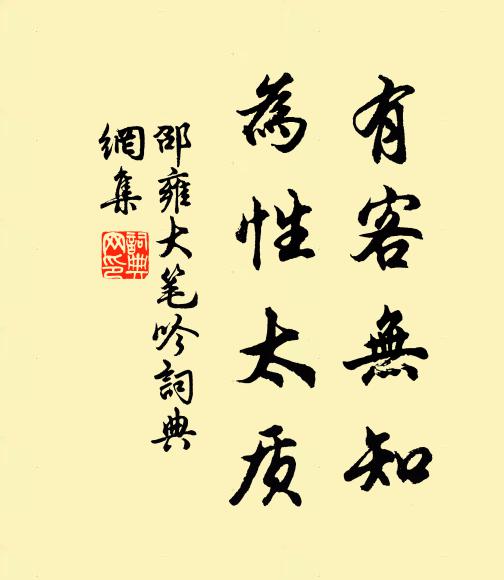 有客無知
為性太质
邵雍大笔吟詞典
網集
詞典
网印